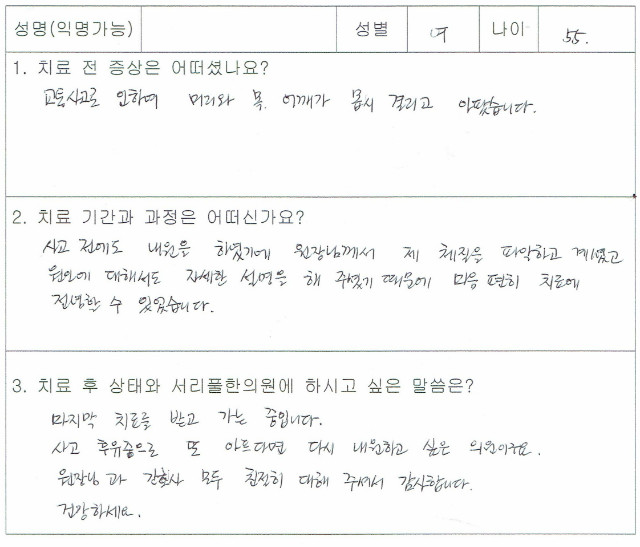 성명(익명가능) 성별 여 나이 55.
1. 치료 전 증상은 어떠셨나요?
교통사고로 인하여 머리와 목, 어깨가 몹시 결리고 아팠습니다.
2. 치료 기간과 과정은 어떠신가요?
사고 전에도 내원을 하였기에 원장님께서 제 체질을 파악하고 계셨고
원인에 대해서도 자세한 설명을 해 주셨기 때문에 마음 편히 치료에
전념할 수 있었습니다.
3. 치료 후 상태와 서리풀한의원에 하시고 싶은 말씀은?
마지막 치료를 받고 가는 중입니다.
사고 후유증으로 또 아프다면 다시 내원하고 싶은 의원이구요.
원장님과 간호사 모두 친절히 대해 주셔서 감사합니다.
건강하세요.